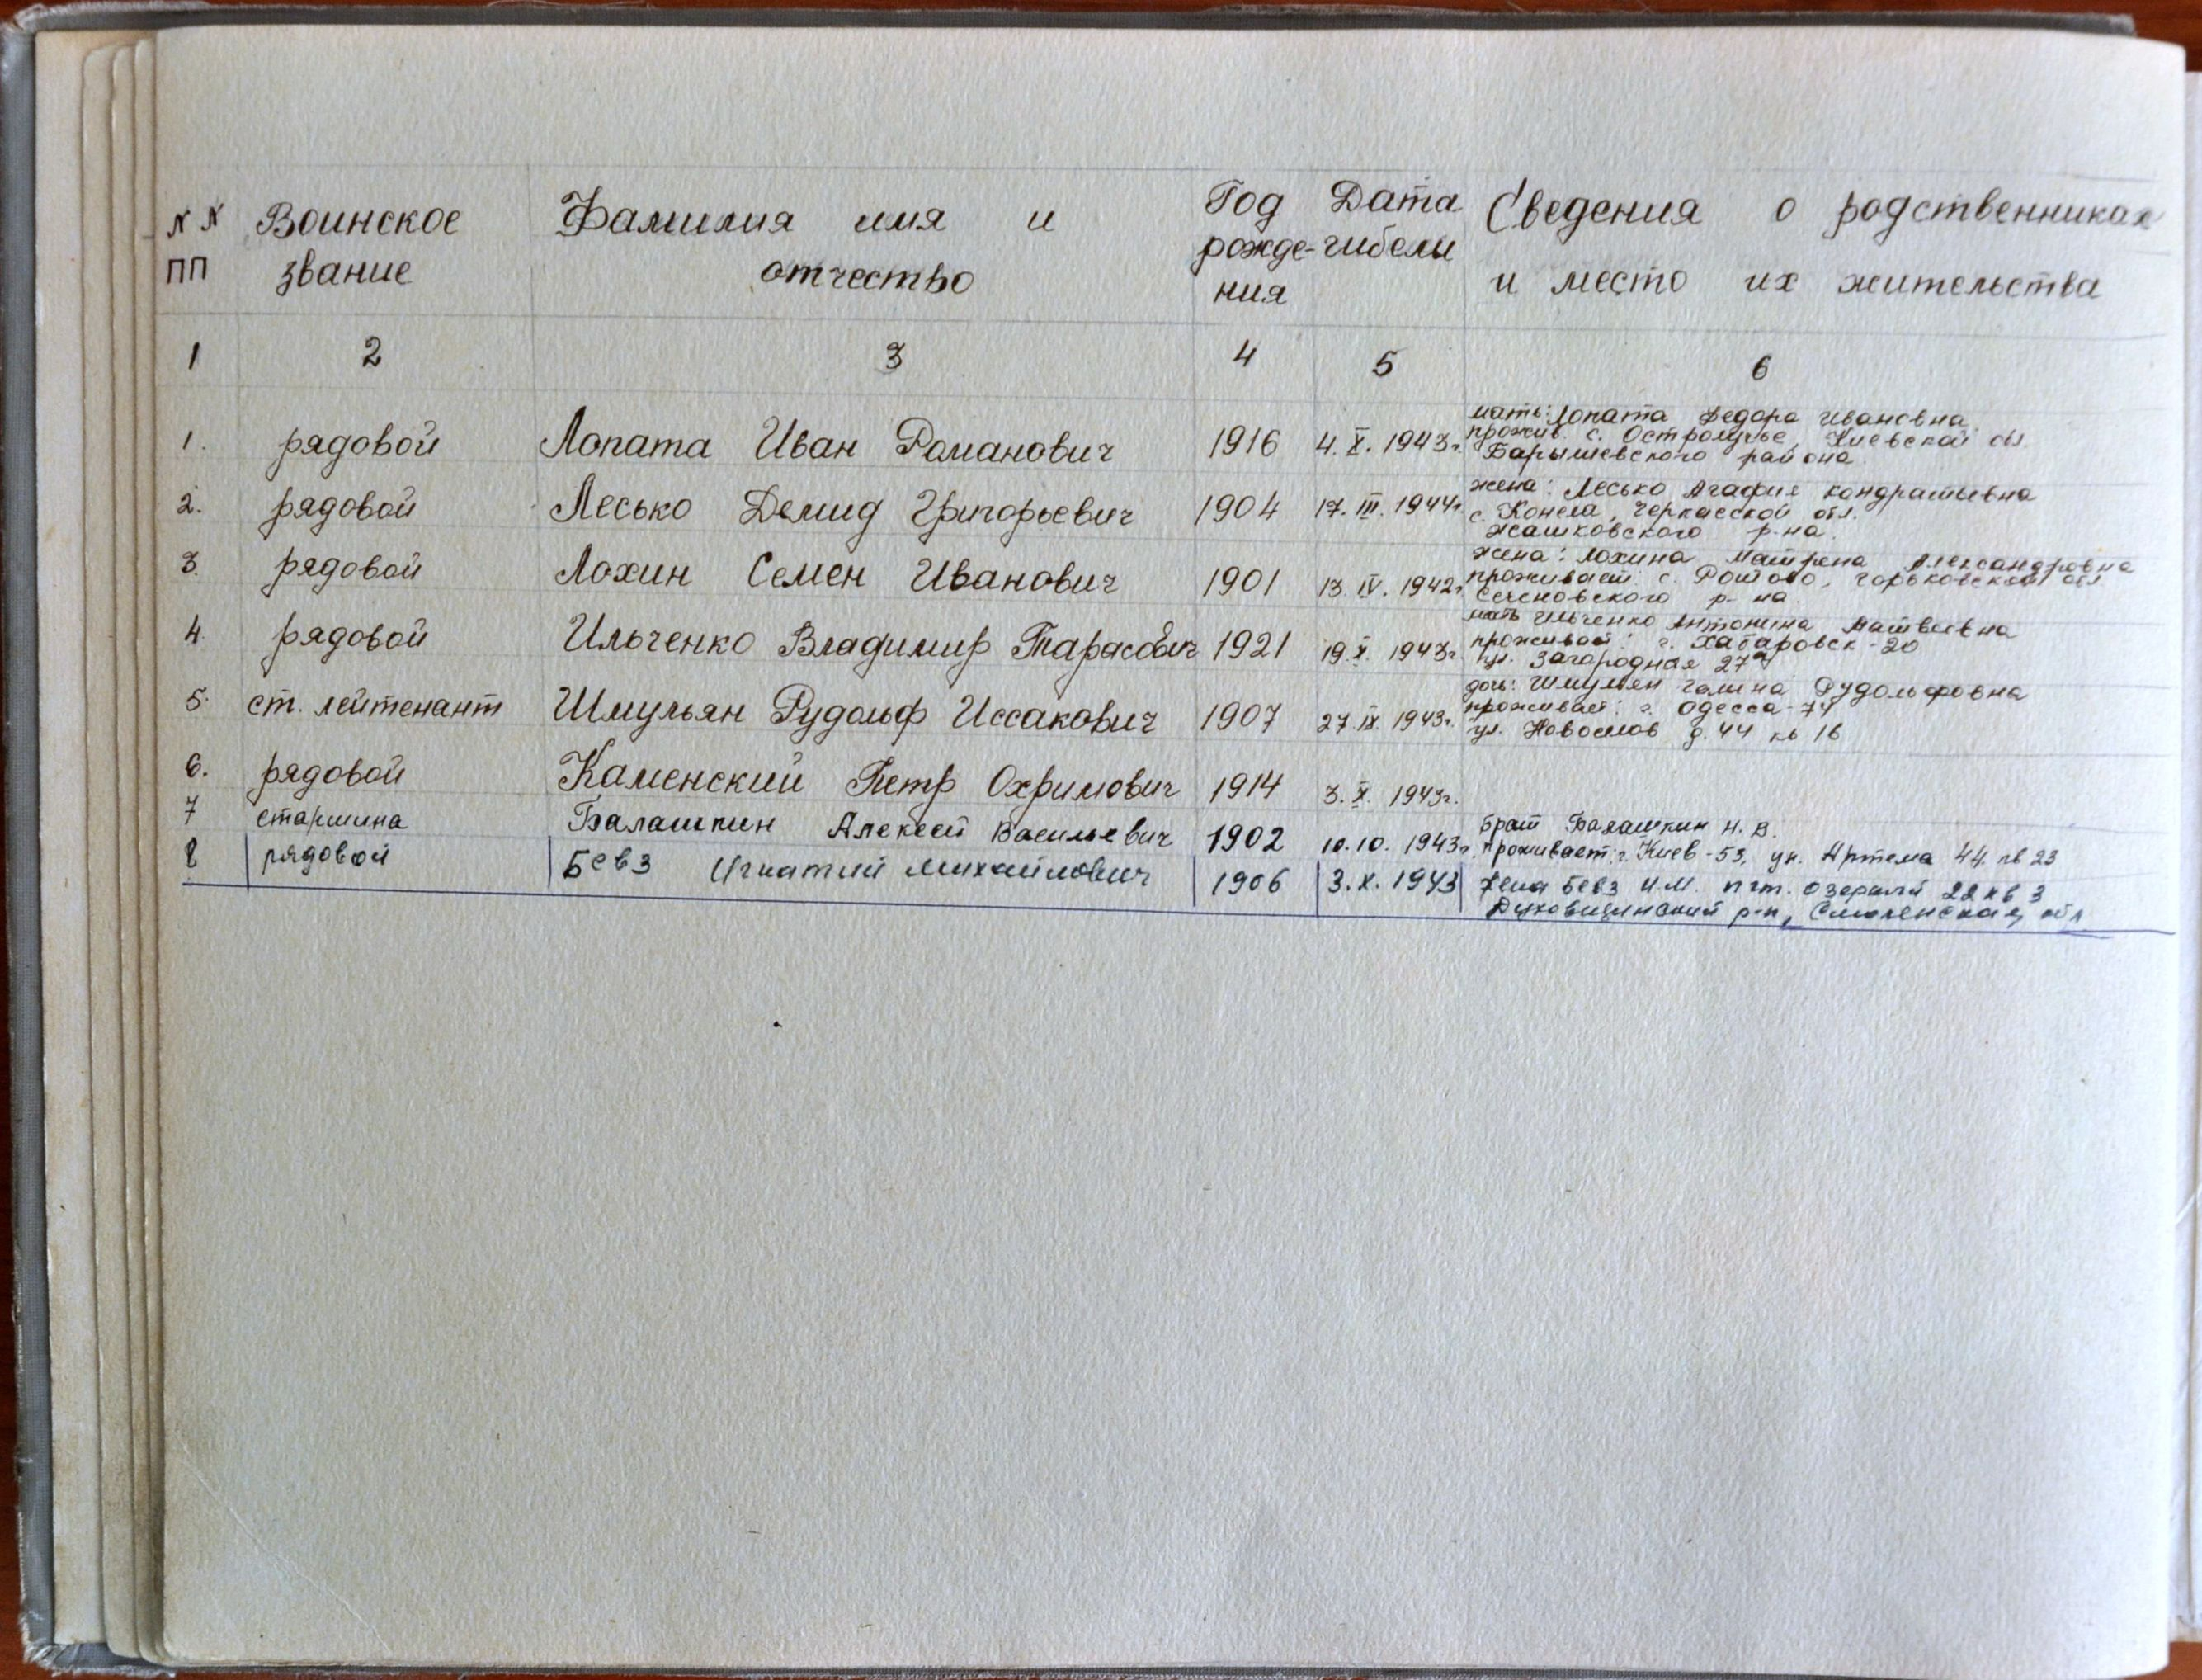 № № Воинское Фамилия имя и Год Дата Сведения о родственниках
пп звание отчество рожде- гибели и место их жительства
ния
1 2 3 4 5 6
1. рядовой Лопата Иван Романович 1916 4.X.1943г. мать: Лопата Федора Ивановна
прожив. с. Остролучье, Киевской обл.
Барышевского района.
2. рядовой Лесько Демид Григорьевич 1904 17.III.1944г. жена: Лесько Агафия Кондратьевна
с. Конела, Черкасской обл.
Жашковского р-на.
3. рядовой Лохин Семен Иванович 1901 13.IV.1942г. жена: Лохина Матрена Александровна
проживает: с. Горьковской обл
Сеченовского р-на.
4. рядовой Ильченко Владимир Тарасович 1921 19.X.1943г. мать Ильченко Антонина Матвеевна
проживает: г. Хабаровск-20
ул. Загородная 27а
5. ст. лейтенант Шмульян Рудольф Иссакович 1907 27.IX.1943г. дочь: Шмульян Галина Рудольфовна
проживает: г. Одесса-74
ул. д. 44 кв 16
6. рядовой Каменский Петр Охримович 1914 3.X.1943г.
7 старшина Балашкин Алексей Васильевич 1902 10.10.1943г. брат Балашкин Н.В.
проживает: г. Киев-53, ул. Артема 44 кв 23
8 рядовой Бевз Игнатий Михайлович 1906 3.X.1943 жена Бевз И.М. пгт. Озерный 22 кв 3
Духовщинский р-н, Смоленская обл